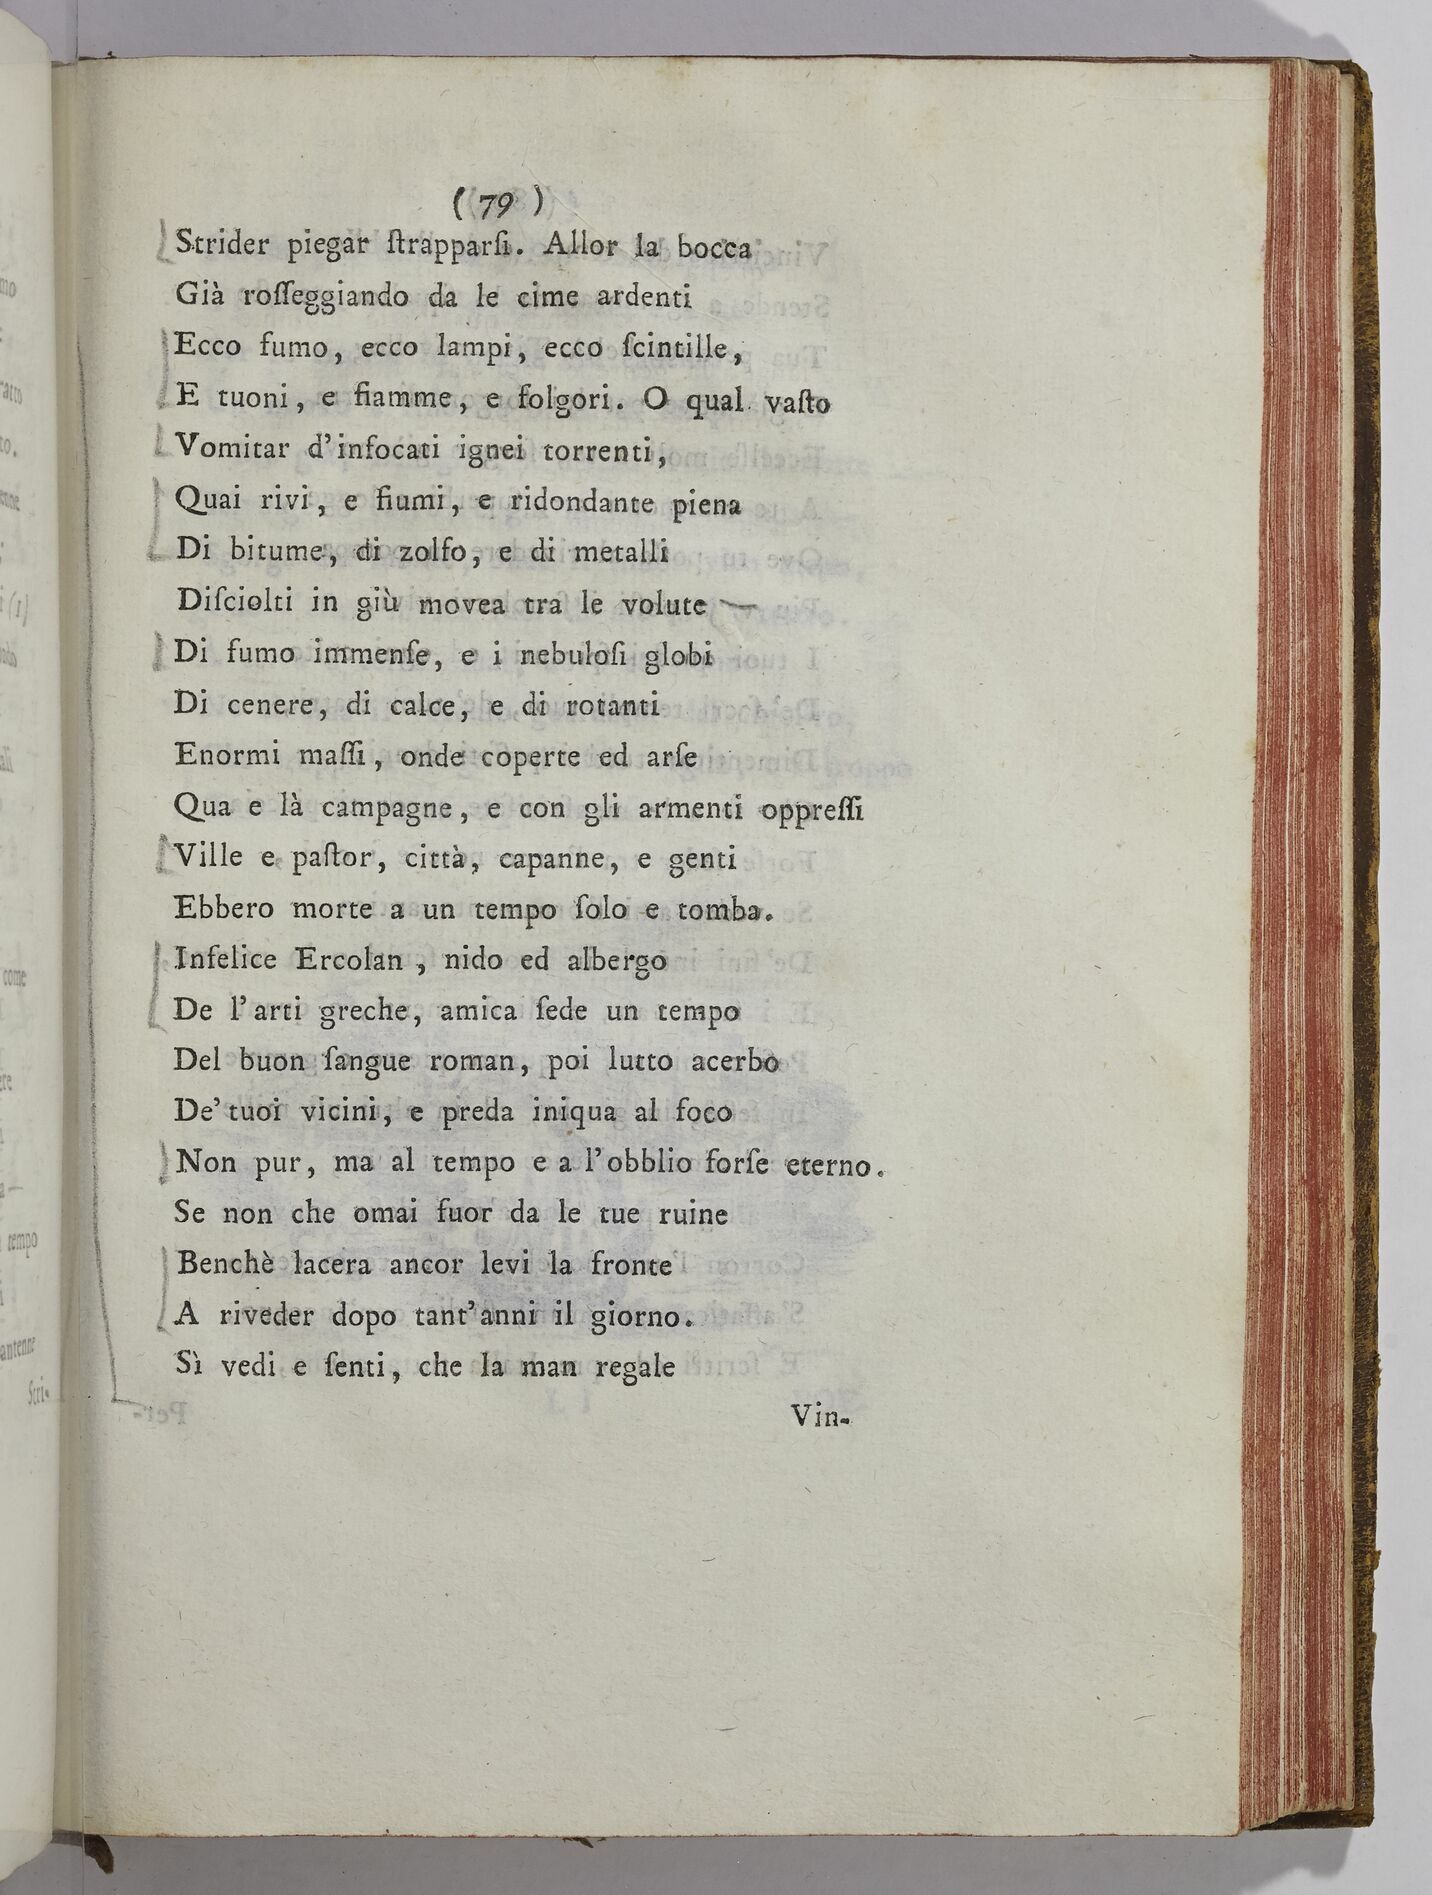 ( 79 )
Strider piegar ſtrapparſi. Allor la bocca
Già roſſeggiando da le cime ardenti
Ecco fumo, ecco lampi, ecco ſcintille,
E tuoni, e fiamme, e folgori. O qual vaſto
Vomitar d'infocati ignei torrenti,
Quai rivi, e fiumi, e ridondante piena
Di bitume, di zolfo, e di metalli
Diſciolti in giù movea tra le volute
Di fumo immenſe, e i nebuloſi globi
Di cenere, di calce, e di rotanti
Enormi maſſi, onde coperte ed arſe
Qua e là campagne, e con gli armenti oppreſſi
Ville e paſtor, città, capanne, e genti
Ebbero morte a un tempo ſolo e tomba.
Infelice Ercolan, nido ed albergo
De l'arti greche, amica ſede un tempo
Del buon ſangue roman, poi lutto acerbo
De' tuoi vicini, e preda iniqua al foco
Non pur, ma al tempo e a l'obblio forſe eterno.
Se non che omai fuor da le tue ruine
Benchè lacera ancor levi la fronte
A riveder dopo tant'anni il giorno.
Sì vedi e ſenti, che la man regale
Vin-
come
tempo
antenne
Scri-